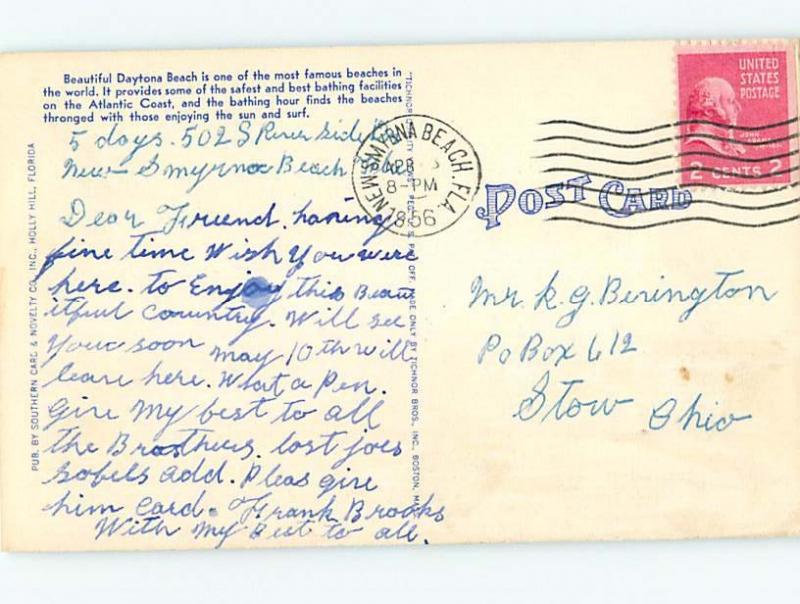 Beautiful Daytona Beach is one of the most famous beaches in
the world. It provides some of the safest and best bathing facilities
on the Atlantic Coast, and the bathing hour finds the beaches
thronged with those enjoying the sun and surf.
5 days. 502 S River side
New Smyrna Beach
Dear Friend, having
fine time Wish You were
here. to Enjoy this Beau
itful Country. Will see
Your soon May 10th will
leave here. What a Pen.
Give My best to all
the Brosthers. lost Joes
Sobels add. Pleas give
him Card. Frank Brooks
With My Best to all.
PUB. BY SOUTHERN CARD & NOVELTY CO., INC., HOLLY HILL, FLORIDA
MADE ONLY BY TICHNOR BROS., INC., BOSTON,
NEW SMYRNA BEACH, FLA.
APR
8-PM
1956
UNITED
STATES
POSTAGE
JOHN
2 CENTS 2
POST CARD
Mr. R. G. Berington
Po Box 612
Stow Ohio